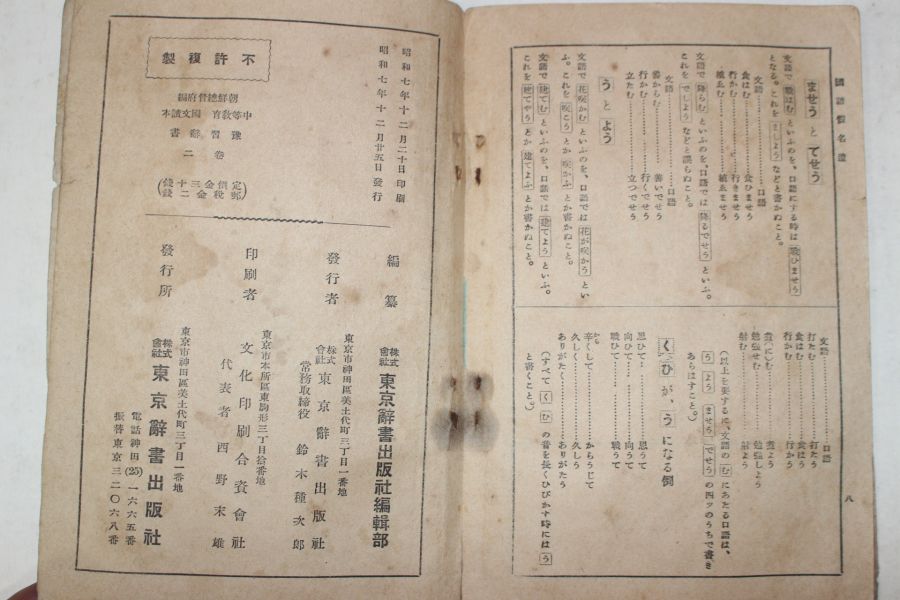 國語假名遣
ませう と でせう
文語で 戰はむ といふのを、口語にする時は 戰ひませう
となる。これを ましよう などと書かぬこと。
文語……………口語
食はむ…………食ひませう
行かむ…………行きませう
植ゑむ…………植ゑませう
文語で 降らむ といふのを、口語では 降るでせう といふ。
これを でしよう などと誤らぬこと。
文語……………口語
善からむ………善いでせう
行かむ…………行くでせう
立たむ…………立つでせう
う と よう
文語で 花咲かむ といふのを、口語では 花が咲かう とい
ふ。これを 咲こう とか 咲かふ とか書かぬこと。
文語で 建てむ といふのを、口語では 建てよう といふ。
これを 建てやう とか 建てよふ とか書かぬこと。
文語……………口語
打たむ…………打たう
食はむ…………食はう
行かむ…………行かう
煮にむ…………煮よう
勉強せむ………勉強しよう
射む……………射よう
(以上を要するに、文語の む にあたる口語は、
う よう ませう でせう の四ツのうちで書き
あらはすこと。)
く ひ が、う になる例
思ひて…………思うて
向ひて…………向うて
戰ひて…………戰うて
辛くして………からうじて
久しく…………久しう
ありがたく……ありがたう
(すべて く ひ の音を長くひびかす時には う
と書くこと。)
八
昭和七年十二月二十日印刷
昭和七年十二月廿五日發行
不許複製
朝鮮總督府編
中等教育 國文讀本
豫習辭書
卷二
定價金三十錢
郵稅金二錢
編纂 株式會社 東京辭書出版社編輯部
東京市神田區美土代町三丁目一番地
發行者 株式會社 東京辭書出版社
常務取締役 鈴木種次郎
東京市本所區東駒形三丁目拾番地
印刷者 文化印刷合資會社
代表者 西野末雄
東京市神田區美土代町三丁目一番地
發行所 株式會社 東京辭書出版社
電話神田(25)一六六五番
振替東京三二〇六八番